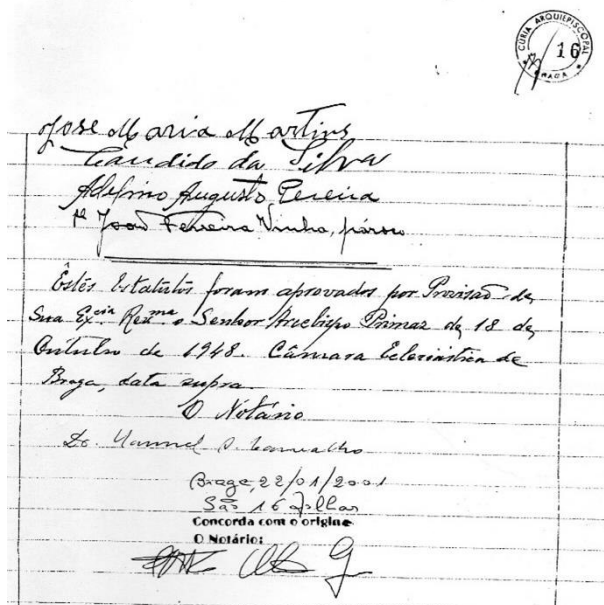 CÚRIA ARQUIEPISCOPAL
BRAGA
16
José Maria Martins
Candido da Silva
Adelino Augusto Pereira
Pe João Ferreira Vinha, pároco
Estes Estatutos foram aprovados por Provisão de
Sua Excia Revma o Senhor Arcebispo Primaz de 18 de
Outubro de 1948. Câmara Eclesiástica de
Braga, data supra.
O Notário
Dr. Manuel Carvalho
Braga, 22/01/2001
São 16 folhas
Concorda com o origina
O Notário: